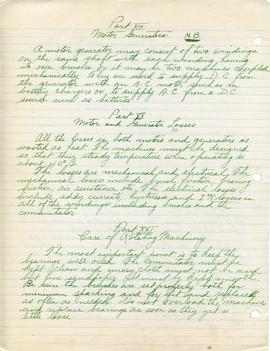 Part XIX
Motor Generators N.B.
A motor generator may consist of two windings
on the same shaft with each winding having
its own brushes or it may be two machines coupled
mechanically. They are used to supply D.C. from
the generator with an A.C. motor such as in
battery chargers or to supply A.C. from a D.C.
source such as batteries.
Part XX
Motor and Generator Losses
All the losses in both motors and generators are
wasted as heat. The machine must be designed
so that their steady temperature when operating is
about 40°C.
The losses are mechanical and electrical. The
mechanical losses include friction, bearing
friction, air resistance etc. The electrical losses
include eddy current, hysteresis and I²R losses in
all of the windings including brushes and the
commutator.
Part XXI
Care of Rotating Machinery
The most important point is to keep the
bearings well oiled. The commutator must be
kept clean and emery cloth must not be used
but use sandpaper.
Be sure the brushes are set properly both for
minimum sparking and for and replaced
as often as needed. Do not overload the machine
and replace bearings as soon as they get a
little loose.